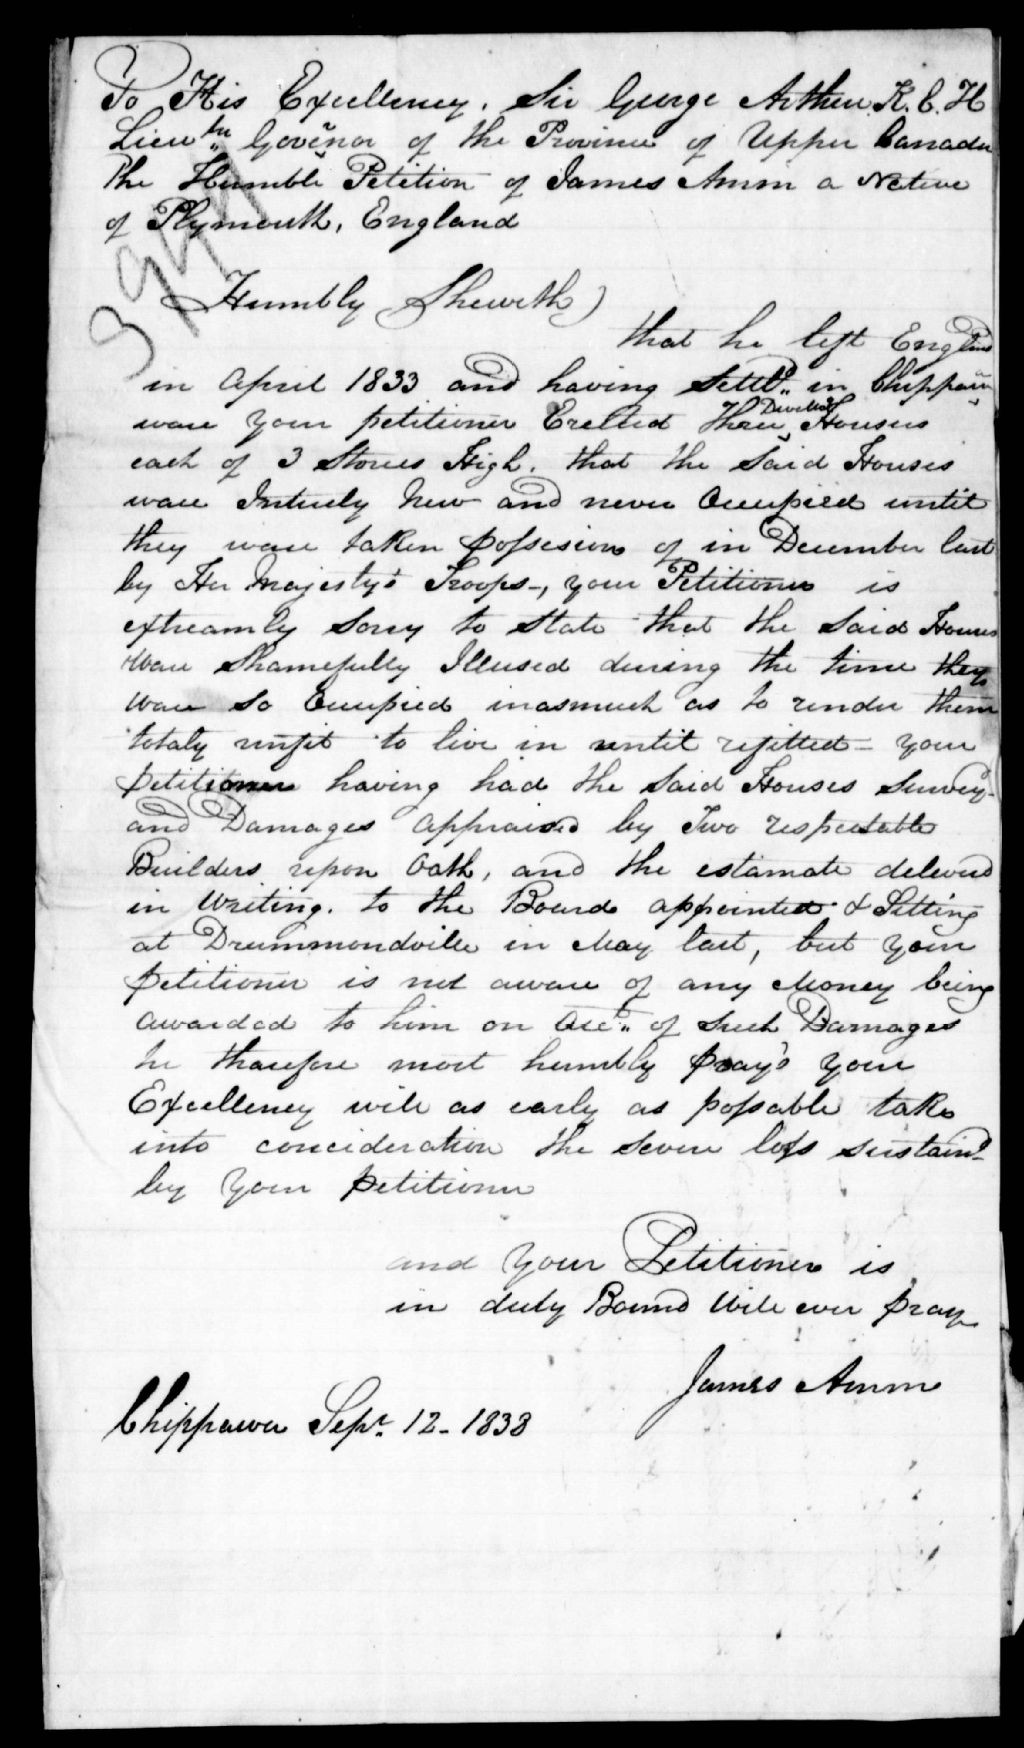 To His Excellency. Sir George Arthur K. C. H
Lieutn Govenor of the Province of Upper Canada
The Humble Petition of James Amm a Native
of Plymouth, England
Humbly Sheweth
that he left England
in April 1833 and having Settld in Chippawa
ware your petitioner Erected Three Dwelling Houses
each of 3 Stories High. that the Said Houses
ware Intirely New and never Occupied until
they ware taken possesion of in December last
by Her Majesty's Troops-, your Petitioner is
extreamly Sorry to State that the Said Houses
Ware Shamefully Illused during the time they
Ware So Occupied inasmuch as to render them
totaly unfit to live in until refitted - your
petitioner having had the Said Houses Survey'd
and Damages appraised by Two respectable
Builders upon Oath, and the estamate deleverd
in Writing. to the Board appointed & Sitting
at Drummondville in May last, but your
petitioner is not aware of any Money being
awarded to him on Acct of Such Damages
he tharefore most humbly pray's your
Excellency will as early as possable take
into concideration the Severe loss sustaind
by your petitioner
and your Petitioner is
in duty Bound Will ever pray
James Amm
Chippawa Sepr 12 - 1838